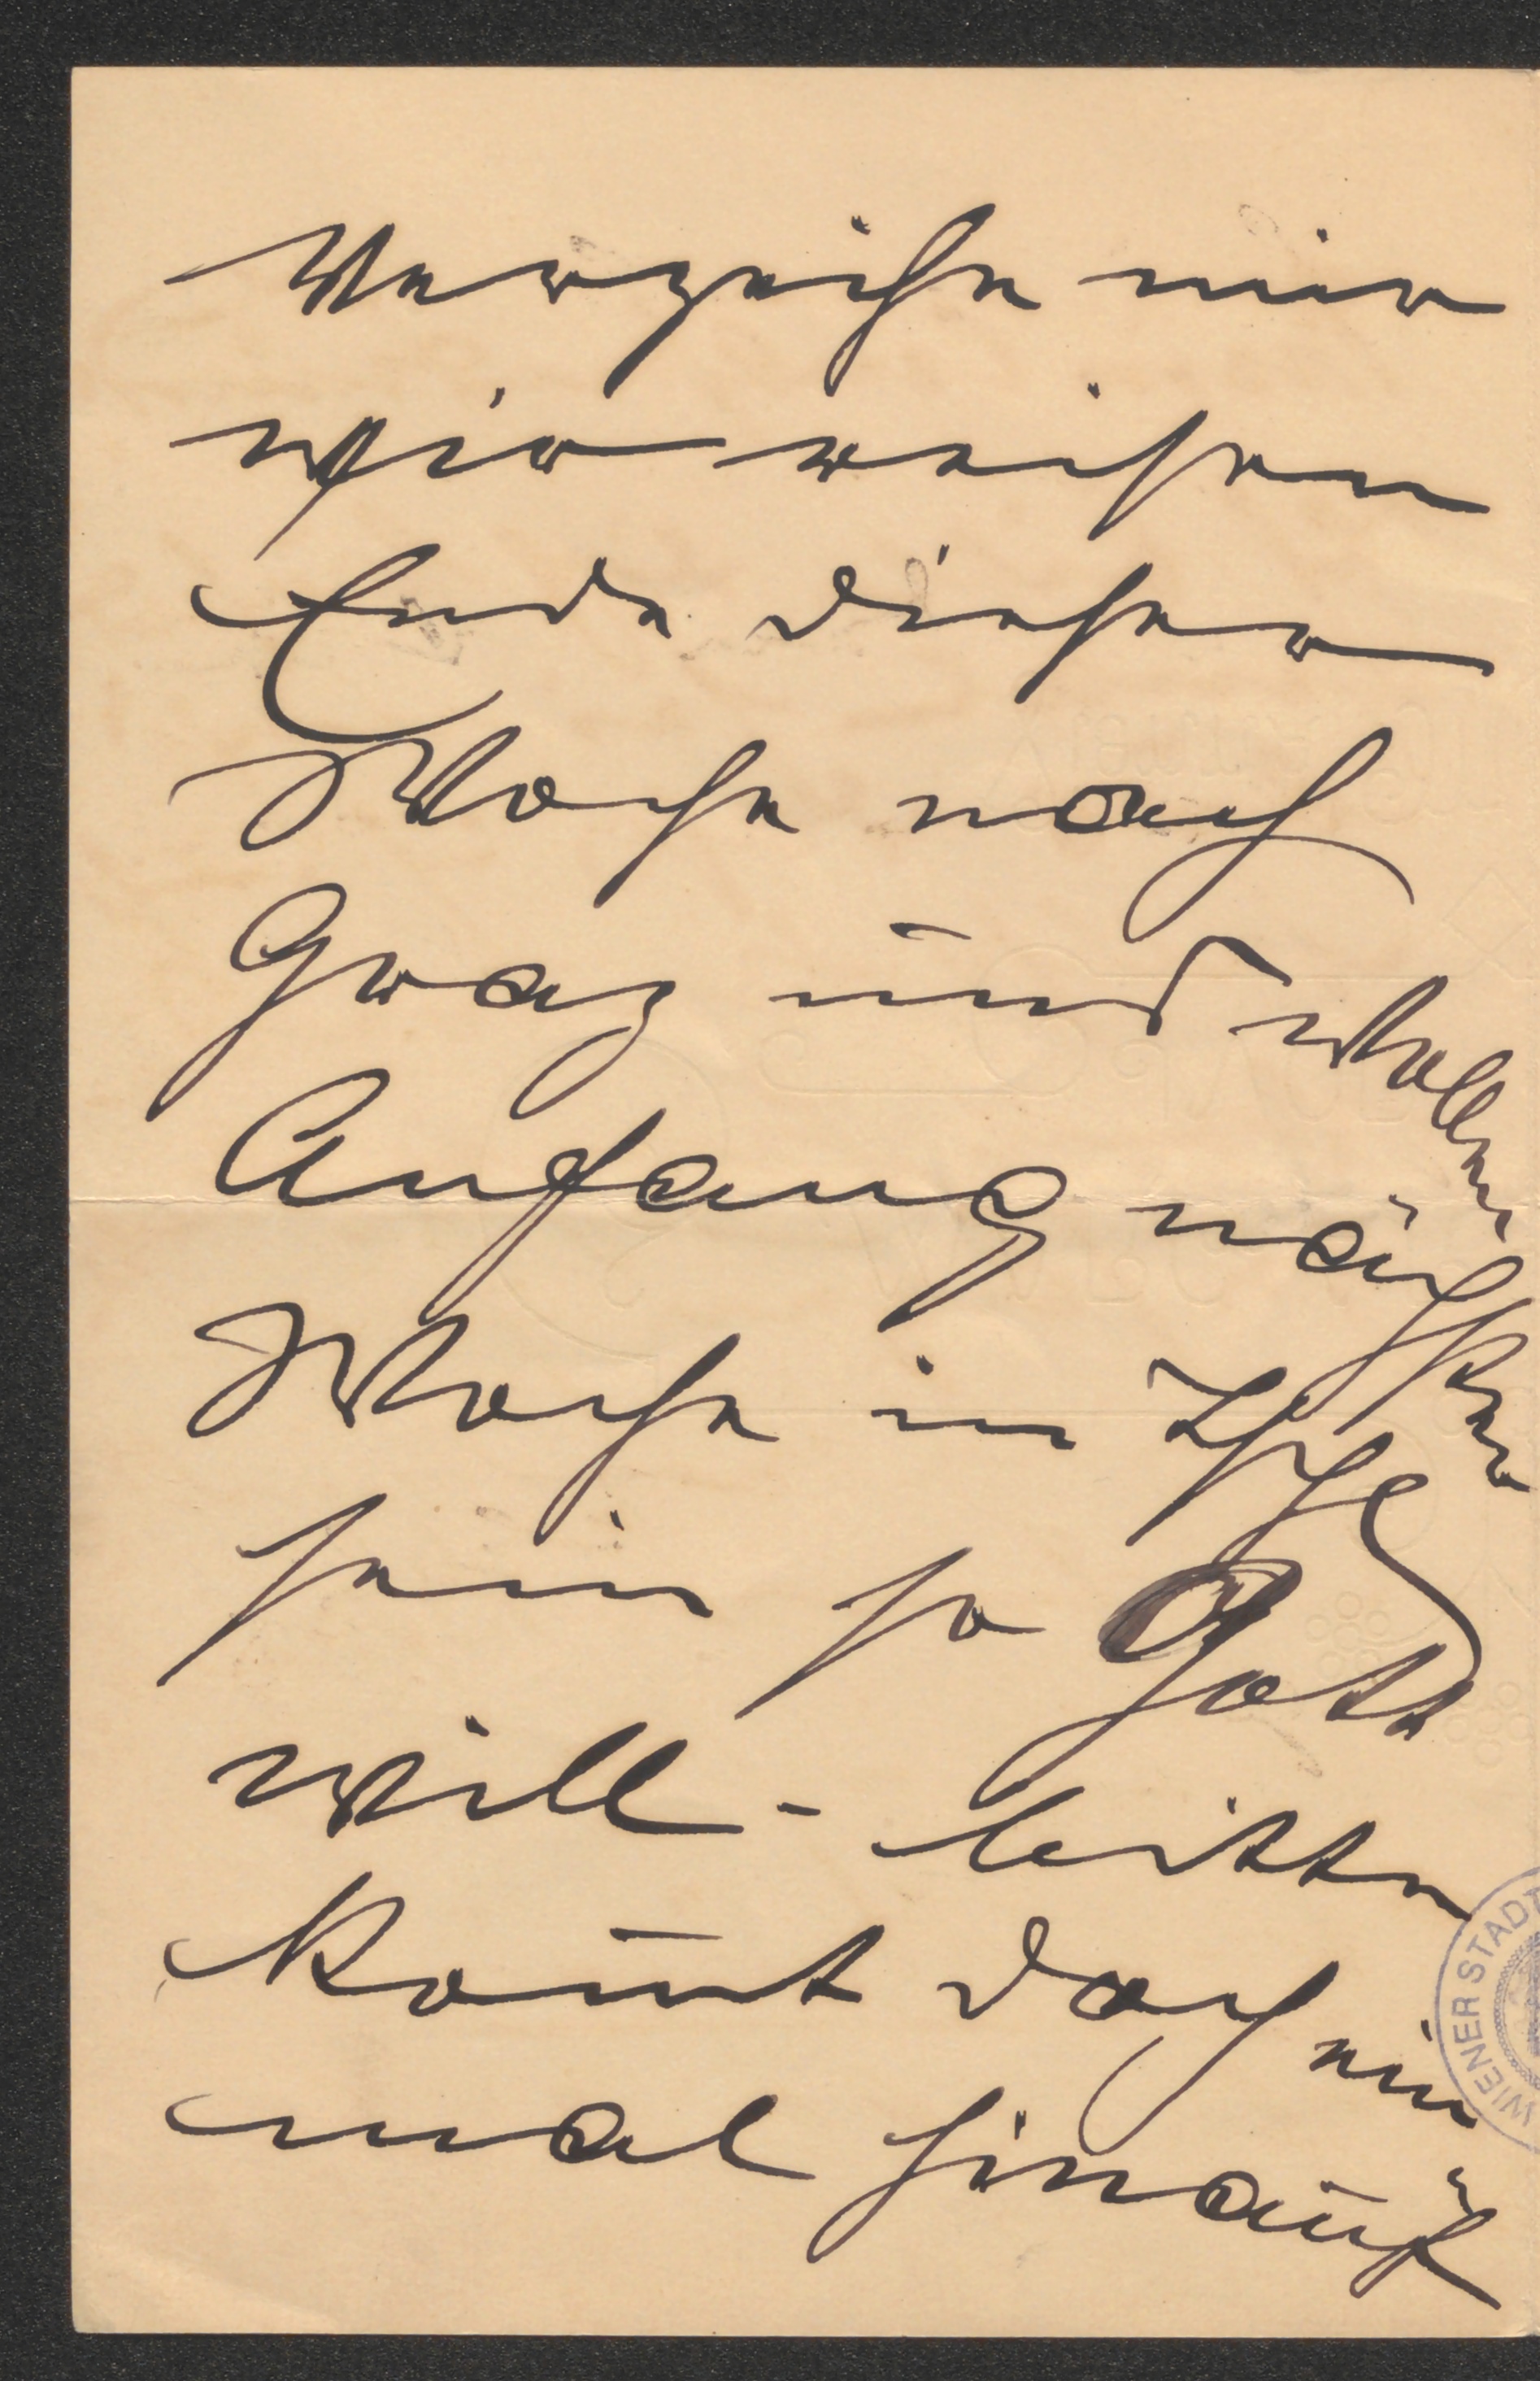 Verzeihe mir
wir reisen
Ende dieser
Woche nach
Graz und wollen
Anfang nächster
Woche in Ischl
sein so Gott
will - bitte
kom̄t doch ein
mal hinauf
WIENER STADT